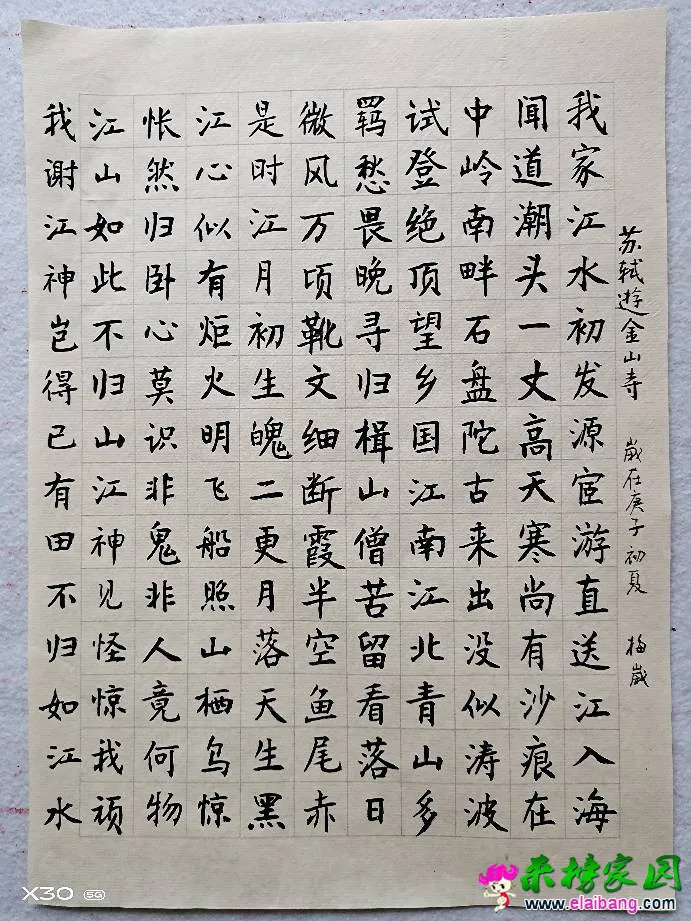 苏轼遊金山寺 歲在庚子初夏 梅歲
我家江水初发源宦游直送江入海
闻道潮头一丈高天寒尚有沙痕在
中岭南畔石盘陀古来出没似涛波
试登绝顶望乡国江南江北青山多
羁愁畏晚寻归楫山僧苦留看落日
微风万顷靴文细断霞半空鱼尾赤
是时江月初生魄二更月落天生黑
江心似有炬火明飞船照山栖乌惊
怅然归卧心莫识非鬼非人竟何物
江山如此不归山江神见怪惊我顽
我谢江神岂得已有田不归如江水
X30 5G
来榜家园
www.elaibang.com